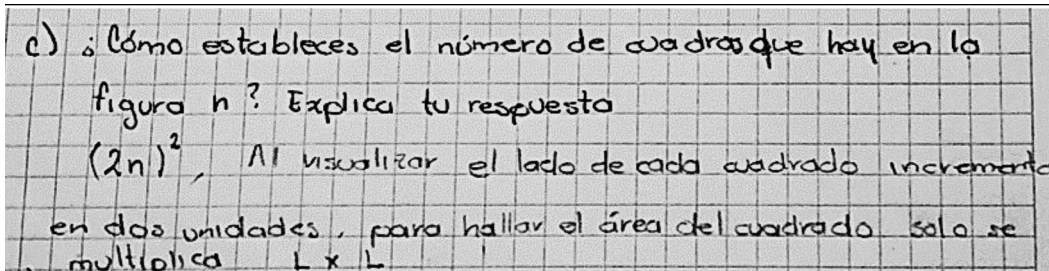 c) ¿Cómo estableces el número de cuadros que hay en la
figura n? Explica tu respuesta
(2n)², Al visualizar el lado de cada cuadrado incrementa
en dos unidades, para hallar el área del cuadrado solo se
multiplica L x L